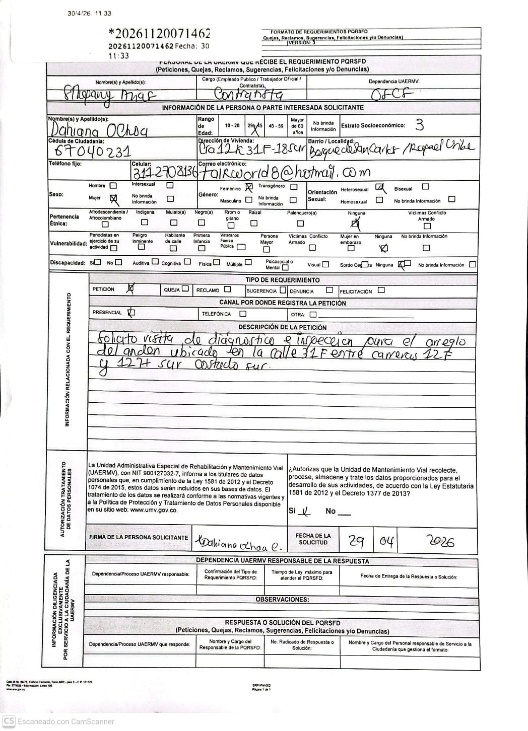 30/4/26, 11:33
*20261120071462
20261120071462 Fecha: 30
11:33
FORMATO DE REQUERIMIENTOS PQRSFD
(Peticiones, Quejas, Reclamos, Sugerencias, Felicitaciones y/o Denuncias)
VERSIÓN: 3
PERSONAL DE LA UAERMV QUE RECIBE EL REQUERIMIENTO PQRSFD
(Peticiones, Quejas, Reclamos, Sugerencias, Felicitaciones y/o Denuncias)
Nombre(s) y Apellido(s)
Cargo (Empleado Público / Trabajador Oficial / Contratista)
Dependencia UAERMV
Contratista
INFORMACIÓN DE LA PERSONA O PARTE INTERESADA SOLICITANTE
Nombre(s) y Apellido(s):
Dahiana Ochoa
Rango de Edad:
18 - 28
29 - 45
46 - 59
Mayor de 60 años
No brinda Información
Estrato Socioeconómico: 3
Cédula de Ciudadanía:
67040231
Dirección de Vivienda:
Barrio / Localidad
Bosque de San Carlos / Rafael Uribe
Teléfono fijo:
Celular:
3112708136
Correo electrónico:
Sexo:
Hombre
Intersexual
Mujer
No brinda Información
Género:
Femenino
Transgénero
Masculino
No brinda Información
Orientación Sexual:
Heterosexual
Bisexual
Homosexual
No brinda Información
Pertenencia Étnica
Afrodescendiente / Afrocolombiano
Indígena
Mulato(a)
Negro(a)
Rrom o gitano
Raizal
Palenquero(a)
Ninguna
Víctimas Conflicto Armado
Vulnerabilidad:
Periodistas en ejercicio de su actividad
Peligro inminente
Habitante de calle
Primera Infancia
Veterano Fuerza Pública
Persona Mayor
Víctimas Conflicto Armado
Mujer en embarazo
Ninguna
No brinda Información
Discapacidad: Sí No
Auditiva
Cognitiva
Física
Múltiple
Psicosocial o Mental
Visual
Sordo Ceguera
Ninguna
No brinda Información
TIPO DE REQUERIMIENTO
PETICIÓN
QUEJA
RECLAMO
SUGERENCIA
DENUNCIA
FELICITACIÓN
CANAL POR DONDE REGISTRA LA PETICIÓN
PRESENCIAL
TELEFÓNICA
OTRA
DESCRIPCIÓN DE LA PETICIÓN
INFORMACIÓN RELACIONADA CON EL REQUERIMIENTO
Solicito visita de diagnostico e inspección para el arreglo
del anden ubicado en la calle 31F entre carreras 12F
sur costado sur.
AUTORIZACIÓN TRATAMIENTO DE DATOS PERSONALES
La Unidad Administrativa Especial de Rehabilitación y Mantenimiento Vial
(UAERMV), con NIT 900127032-7, informa a los titulares de datos
personales que, en cumplimiento de la Ley 1581 de 2012 y el Decreto
1074 de 2015, estos datos serán incluidos en sus bases de datos. El
tratamiento de los datos se realizará conforme a las normativas vigentes y
a la Política de Protección y Tratamiento de Datos Personales disponible
en su sitio web: www.umv.gov.co.
¿Autorizas que la Unidad de Mantenimiento Vial recolecte,
procese, almacene y trate los datos proporcionados para el
desarrollo de sus actividades, de acuerdo con la Ley Estatutaria
1581 de 2012 y el Decreto 1377 de 2013?
Sí No
FIRMA DE LA PERSONA SOLICITANTE
Dahiana Ochoa C.
FECHA DE LA SOLICITUD
29 04 2026
INFORMACIÓN DILIGENCIADA EXCLUSIVAMENTE POR SERVICIO A LA CIUDADANÍA DE LA UAERMV
DEPENDENCIA UAERMV RESPONSABLE DE LA RESPUESTA
Dependencia/Proceso UAERMV responsable:
Confirmación del Tipo de Requerimiento PQRSFD:
Tiempo de Ley, máximo para atender el PQRSFD:
Fecha de Entrega de la Respuesta o Solución:
OBSERVACIONES:
RESPUESTA O SOLUCIÓN DEL PQRSFD
(Peticiones, Quejas, Reclamos, Sugerencias, Felicitaciones y/o Denuncias)
Dependencia/Proceso UAERMV que responde:
Nombre y Cargo del Responsable de la PQRSFD:
No. Radicado de Respuesta o Solución:
Nombre y Cargo del Personal responsable de Servicio a la Ciudadanía que gestiona el formato:
Página 1 de 1
CS Escaneado con CamScanner